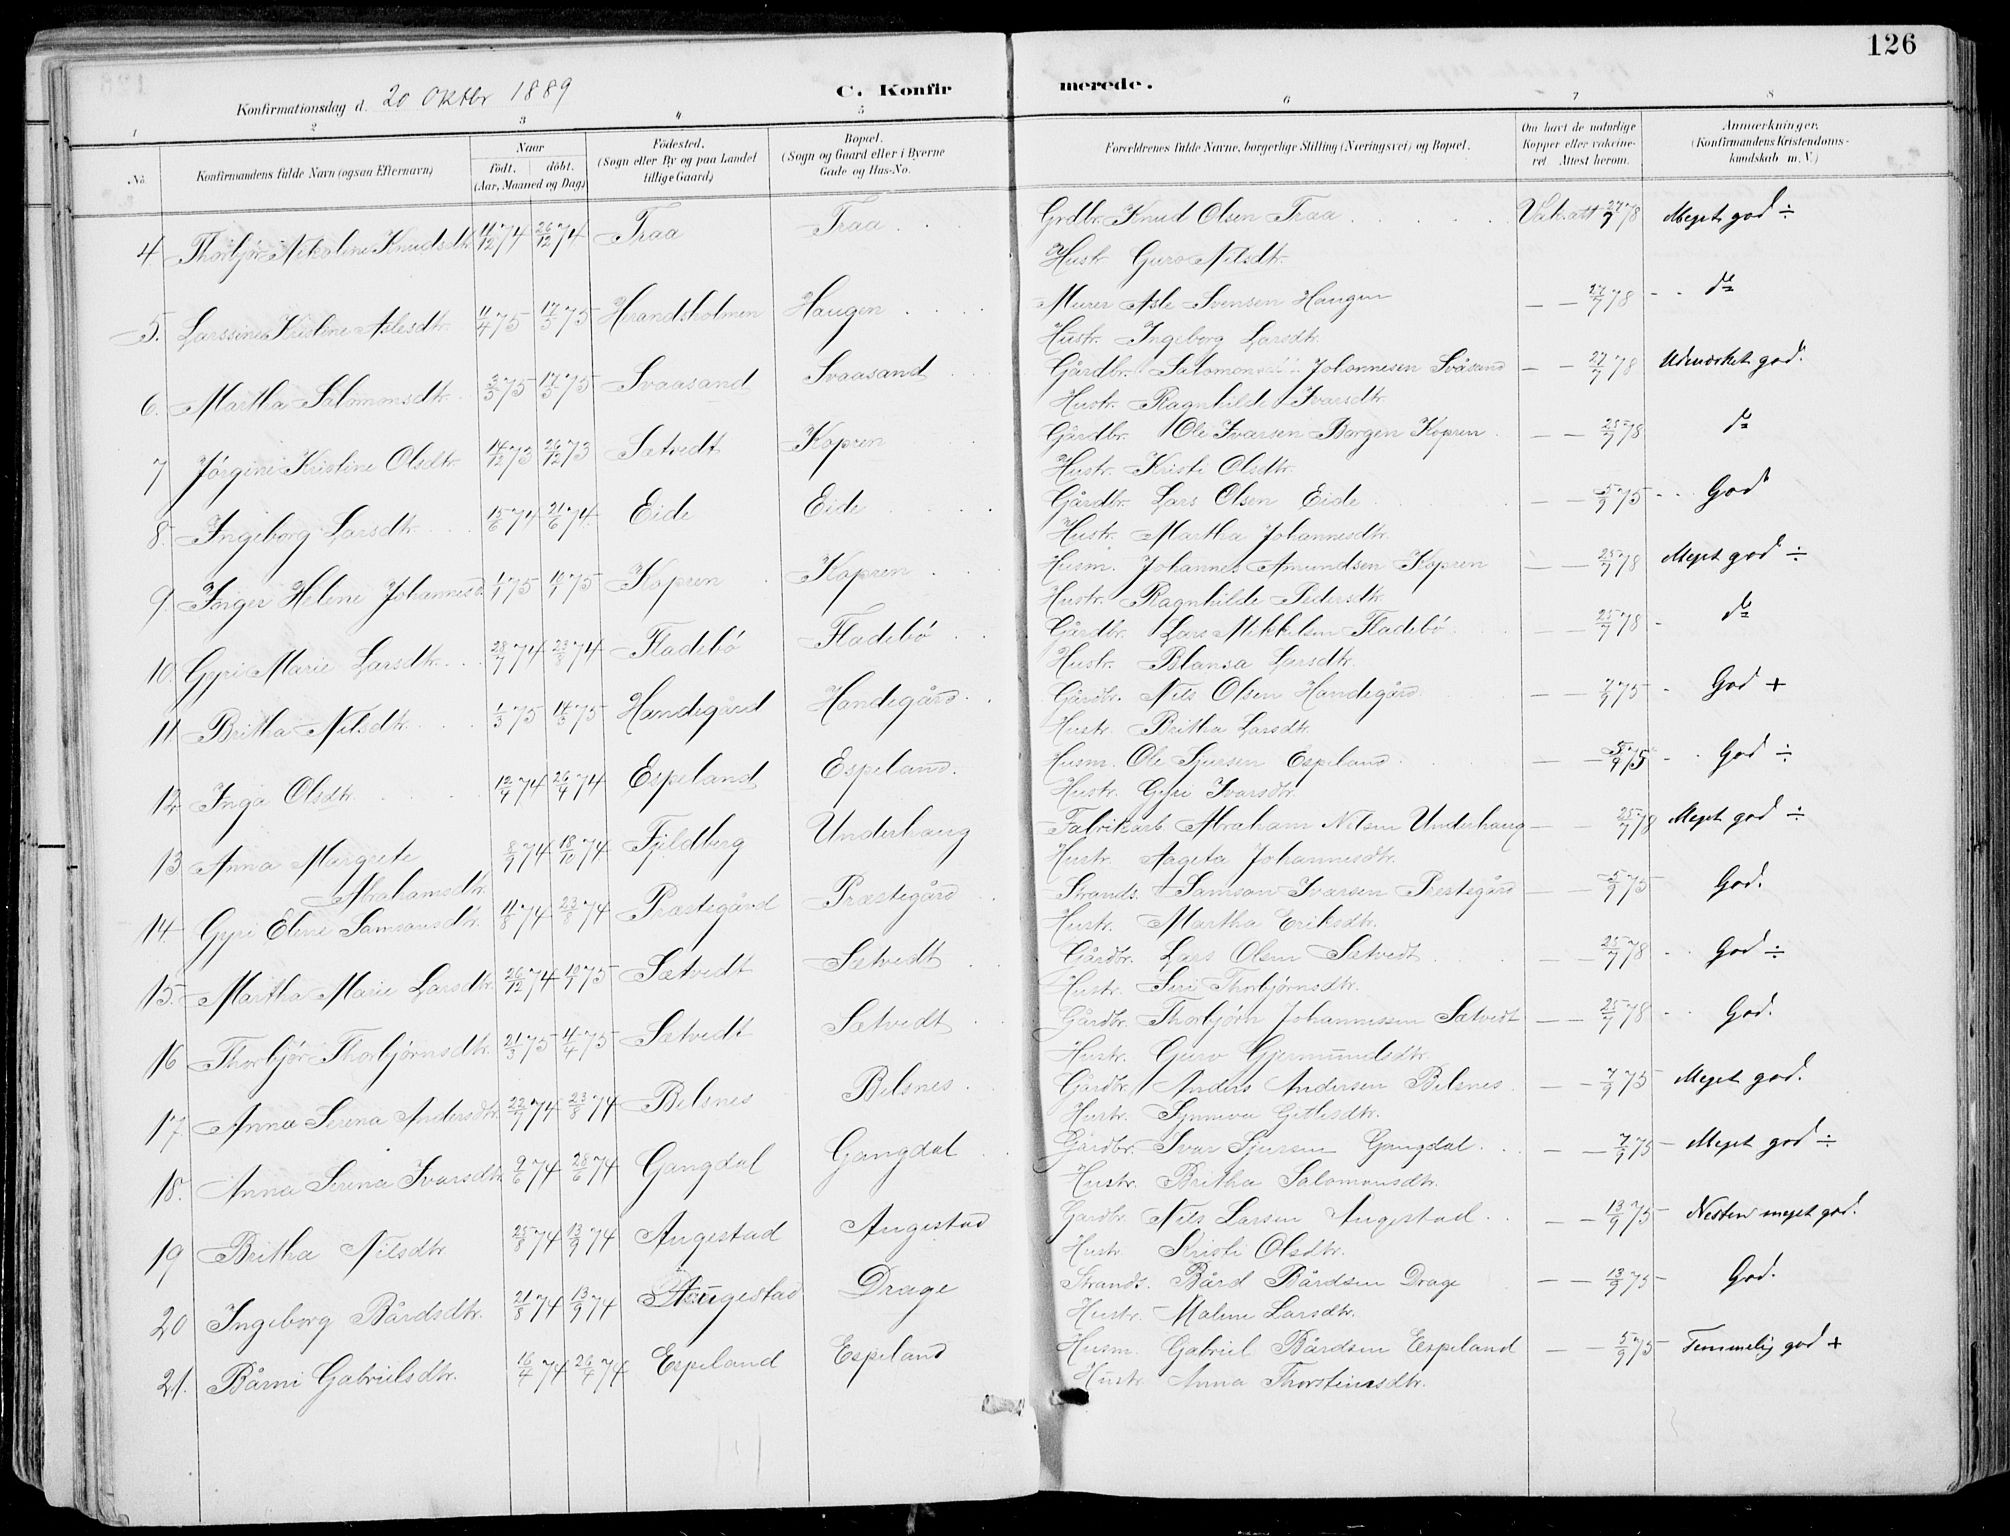 126
Konfirmationsdag d. 20 Oktbr 1889
C. Konfirmerede.
1 2 3 4 5 6 7 8
No.
Konfirmandens fulde Navn (ogsaa Efternavn)
Naar
født. døbt.
(Aar, Maaned og Dag)
Fødested.
(Sogn eller By og paa Landet
tillige Gaard)
Bopæl.
(Sogn og Gaard eller i Byerne
Gade og Hus-No.
Forældrenes fulde Navne, borgerlige Stilling (Næringsvei) og Bopæl.
Om havt de naturlige
Kopper eller vakcine-
ret. Attest herom.
Anmærkninger.
(Konfirmandens Kristendoms-
kundskab m. V.)
4 Thorbjør Nikoline Knudsdtr. 11/12 74 26/12 74 Traa Traa Grdbr. Knud Olsen Traa Vak.att 27/7 78 Meget god ÷
Hustr Guro Nilsdtr.
5. Larssine Kristine Aslesdtr. 11/4 75 17/5 75 Herandsholmen Haugen Murer Asle Svensen Haugen — — 27/7 78 do
Hustr. Ingeborg Larsdtr.
6. Martha Salomonsdtr. 3/5 75 17/5 75 Svaasand Svaasand Gårdbr. Salomon Johannesen Svåsand — — 27/7 78 Udmærket god.
Hustr. Ragnhilde Ivarsdtr.
7 Jørgine Kristine Olsdtr. 14/12 73 26/12 73 Sætvedt Kopren Gårdbr. Ole Ivarsen Borgen Kopren — — 25/7 78 do
Hustr. Kristi Olsdtr.
8. Ingeborg Larsdtr. 15/6 74 21/6 74 Eide Eide Gårdbr. Lars Olsen Eide — — 5/9 75 God
Hustr. Martha Johannesdtr.
9 Inger Helene Johannesd 1/1 75 10/1 75 Kopren Kopren Husm. Johannes Amundsen Kopren — — 25/7 78 Meget god ÷
Hustr. Ragnhilde Pedersdtr.
10. Gyri Marie Larsdtr. 28/7 74 23/8 74 Fladebø Fladebø Gårdbr. Lars Mikkelsen Fladebø — — 25/7 78 do
Hustr. Blansa Larsdtr.
11 Britha Nilsdtr. 1/3 75 14/3 75 Handegård Handegård Gårdbr. Nils Olsen Handegård — — 7/9 75 God +
Hustr. Britha Larsdtr.
12 Inga Olsdtr. 12/4 74 26/4 74 Espeland Espeland. Husm. Ole Sjursen Espeland — — 5/9 75 God ÷
Hustr. Gyri Ivarsdtr.
13 Anna Margrete 8/9 74 18/10 74 Fjeldberg Underhaug Fabrikarb. Abraham Nilsen Underhaug — — 25/7 78 Meget god ÷
Abrahamsdtr. Hustr. Aageta Johannesdtr.
14. Gyri Eline Samsonsdtr. 11/8 74 23/8 74 Præstegård Præstegård Strands. Samson Ivarsen Prestegård — — 5/9 75 God.
Hustr. Martha Eriksdtr.
15. Martha Marie Larsdtr. 26/12 74 10/1 75 Sætvedt Sætvedt Gårdbr. Lars Olsen Sætvedt — — 25/7 78 God ÷
Hustr. Siri Thorbjørnsdtr.
16 Thorbjør Thorbjørnsdtr. 21/3 75 11/4 75 Sætvedt Sætvedt Gårdbr. Thorbjørn Johannessen Sætvedt — — 25/7 78 God.
Hustr. Guro Gjermundsdtr.
17. Anna Serina Andersdtr. 22/7 74 23/8 74 Belsnes Belsnes Gårdbr. Anders Andersen Belsnes — — 7/9 75 Meget god.
Hustr. Synneva Gitlesdtr.
18. Anna Serina Ivarsdtr. 9/6 74 28/6 74 Gangdal Gangdal Gårdbr. Ivar Sjursen Gangdal. — — 7/9 75 — Meget god ÷
Hustr. Britha Salomonsdtr.
19 Britha Nilsdtr. 25/8 74 13/9 74 Augestad Augestad Gårdbr. Nils Larsen Augestad — — 13/9 75 — Nesten meget god.
Hustr. Kristi Olsdtr.
20 Ingeborg Bårdsdtr. 21/8 74 13/9 74 Augestad Drage Strands. Bård Bårdsen Drage — — 13/9 75 — God.
Hustr. Malene Larsdtr.
21. Bårni Gabrielsdtr. 16/4 74 26/4 74 Espeland Espeland Husm. Gabriel Bårdsen Espeland — — 5/9 75 — Temmelig god +
Hustr Anna Thorsteinsdtr.